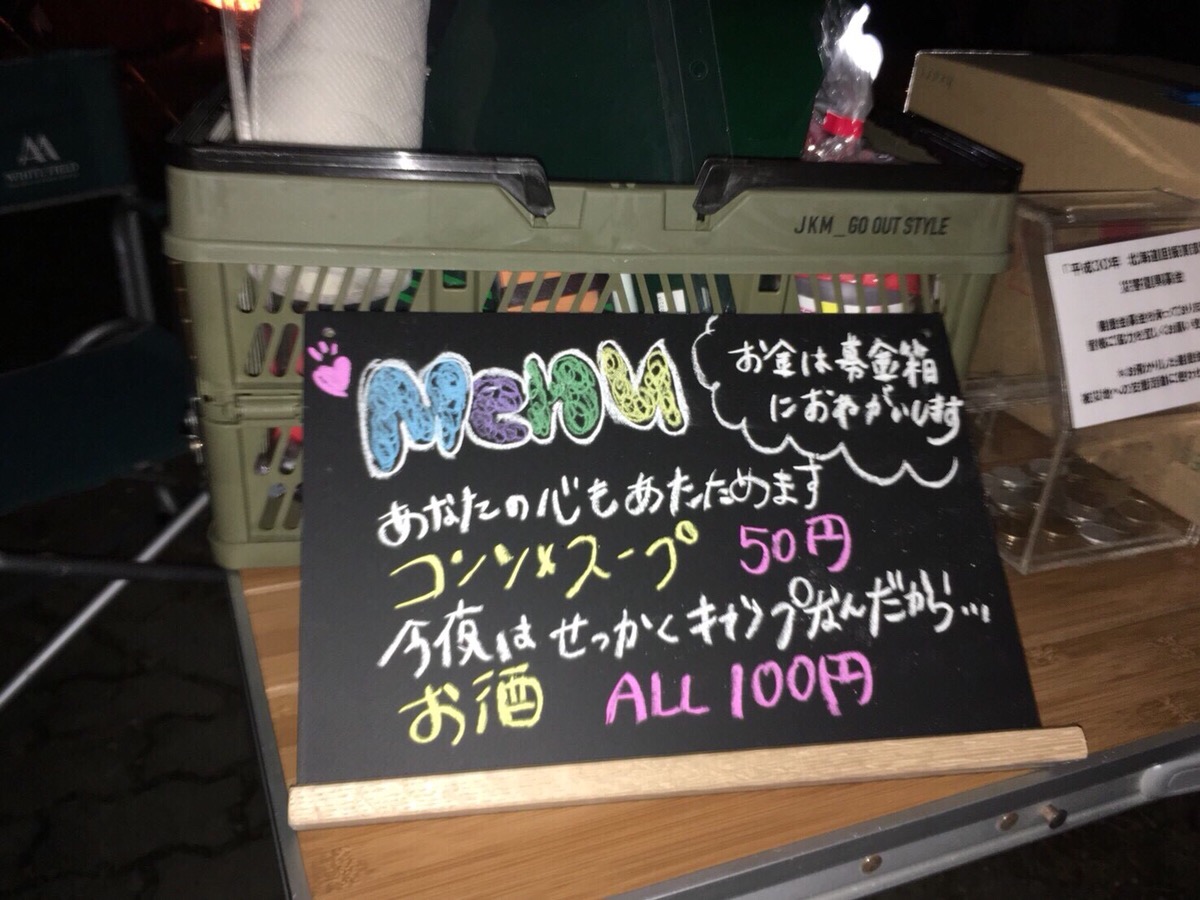 WHITE FIELD
JKM_GO OUT STYLE
Menu
お金は募金箱
におねがいします
あなたの心もあたためます
コンソメスープ 50円
今夜はせっかくキャンプなんだから...
お酒 ALL 100円
「平成30年 北海道胆振
災害義援金